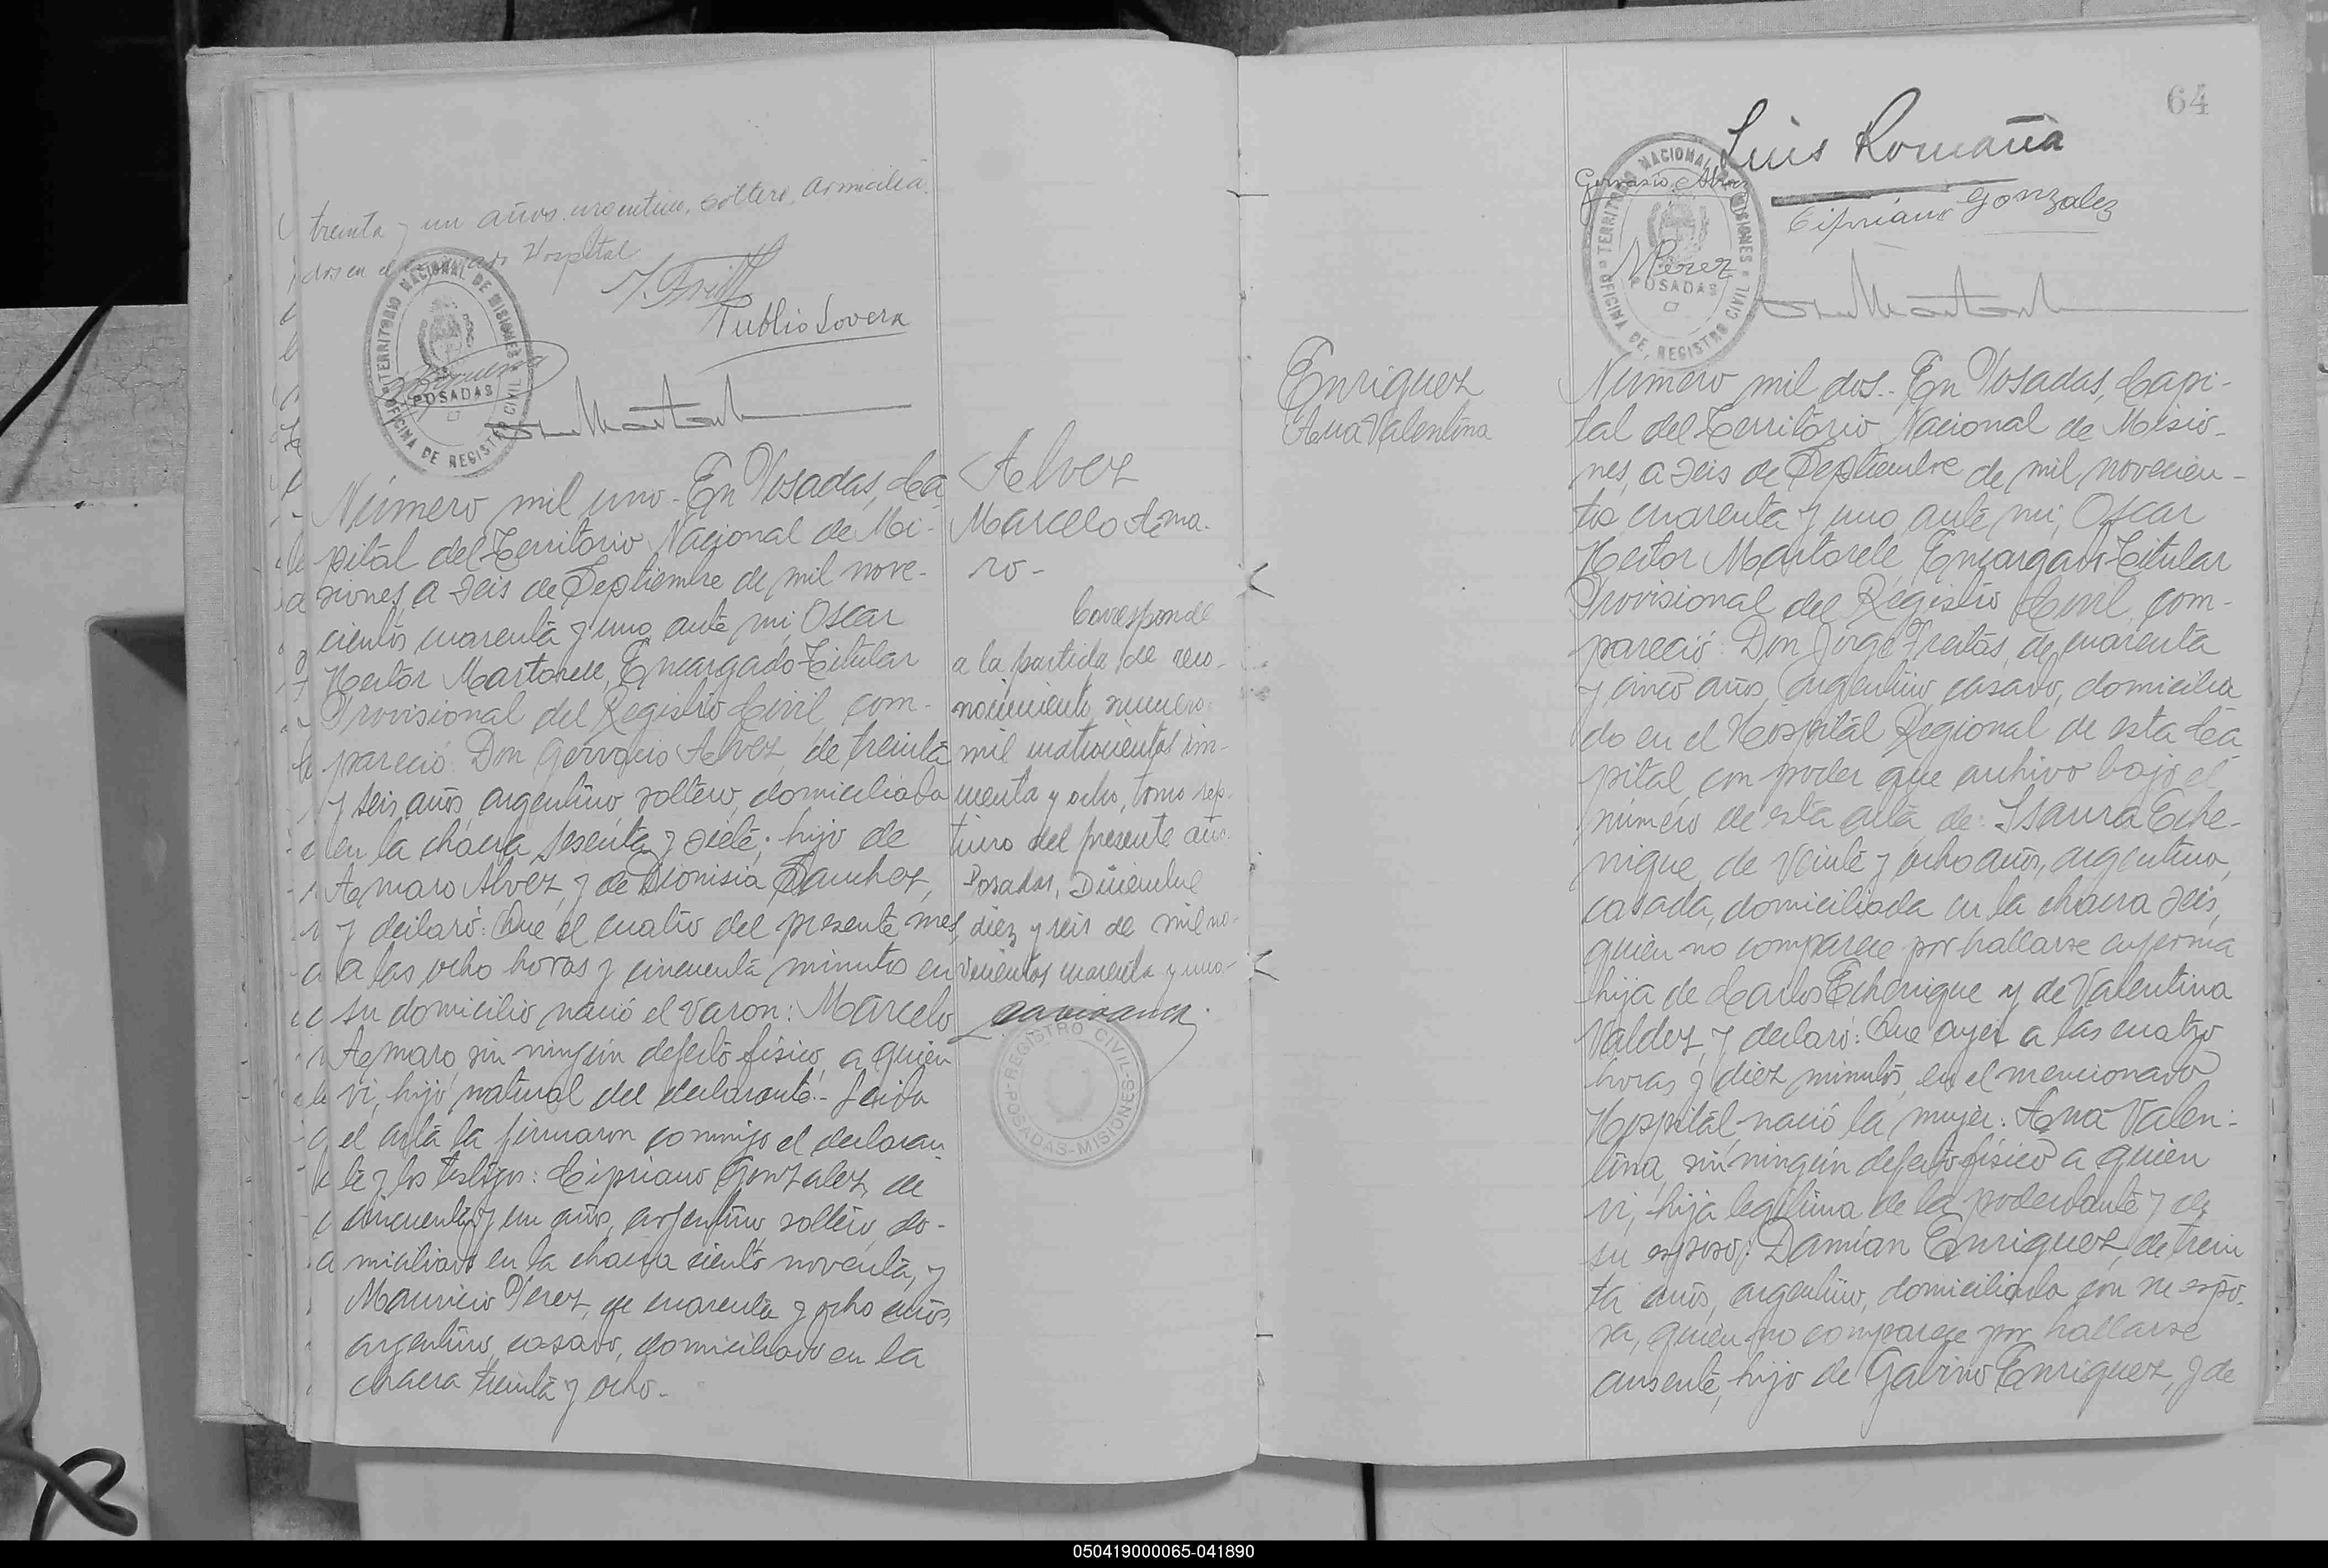 treinta y un años, argentino, soltero, domicilia
dos en el Hospital
J. Freitas
Publio Lovera
TERRITORIO NACIONAL DE MISIONES
POSADAS
OFICINA DE REGISTRO CIVIL
Número mil uno.- En Posadas, Ca
pital del Territorio Nacional de Mi-
siones, a seis de Septiembre de mil nove-
cientos cuarenta y uno, ante mi, Oscar
Hector Martorell, Encargado Titular
Provisional del Registro Civil, com-
pareció: Don Gervacio Alvez, de treinta
y seis años, argentino, soltero, domiciliado
en la chacra sesenta y siete; hijo de
Amaro Alvez, y de Dionisia Sanchez,
y declaró: Que el cuatro del presente mes,
a las ocho horas y cincuenta minutos en
su domicilio nació el varon: Marcelo
Amaro, sin ningún defecto físico, a quien
vi, hijo natural del declarante.- Leida
el acta la firmaron conmigo el declaran
te y los testigos: Cipriano Gonzalez, de
cincuenta y un años, argentino, soltero, do-
miciliado en la chacra ciento noventa, y
Mauricio Perez, de cuarenta y ocho años,
argentino, casado, domiciliado en la
chacra treinta y ocho.-
Alvez
Marcelo Ama-
ro-
Corresponde
a la partida de reco-
nocimiento número
mil cuatrocientos cin-
cuenta y ocho, tomo sép-
timo del presente año.
Posadas, Diciembre
diez y seis de mil no-
vecientos cuarenta y uno.-
REGISTRO CIVIL
POSADAS-MISIONES
64
Luis Romaña
Gervasio Alvez
Cipriano Gonzalez
MPerez
TERRITORIO NACIONAL DE MISIONES
POSADAS
OFICINA DE REGISTRO CIVIL
Enriquez
Ana Valentina
Número mil dos.- En Posadas, Capi-
tal del Territorio Nacional de Misio-
nes, a seis de Septiembre de mil novecien-
tos cuarenta y uno, ante mi, Oscar
Hector Martorell, Encargado Titular
Provisional del Registro Civil, com-
pareció: Don Jorge Freitas, de cuarenta
y cinco años, argentino, casado, domicilia
do en el Hospital Regional de esta Ca
pital, con poder que archivo bajo el
número de esta acta de: Isaura Eche-
nique, de veinte y ocho años, argentina,
casada, domiciliada en la chacra seis,
quien no comparece por hallarse enferma
hija de Carlos Echenique y de Valentina
Valdez, y declaró: Que ayer a las cuatro
horas y diez minutos, en el mencionado
Hospital, nació la mujer: Ana Valen-
tina, sin ningún defecto físico a quien
vi, hija legítima de la poderdante y de
su esposo: Damián Enriquez, de trein
ta años, argentino, domiciliado con su espo-
sa, quien no comparece por hallarse
ausente, hijo de Gabino Enriquez, y de
050419000065-041890